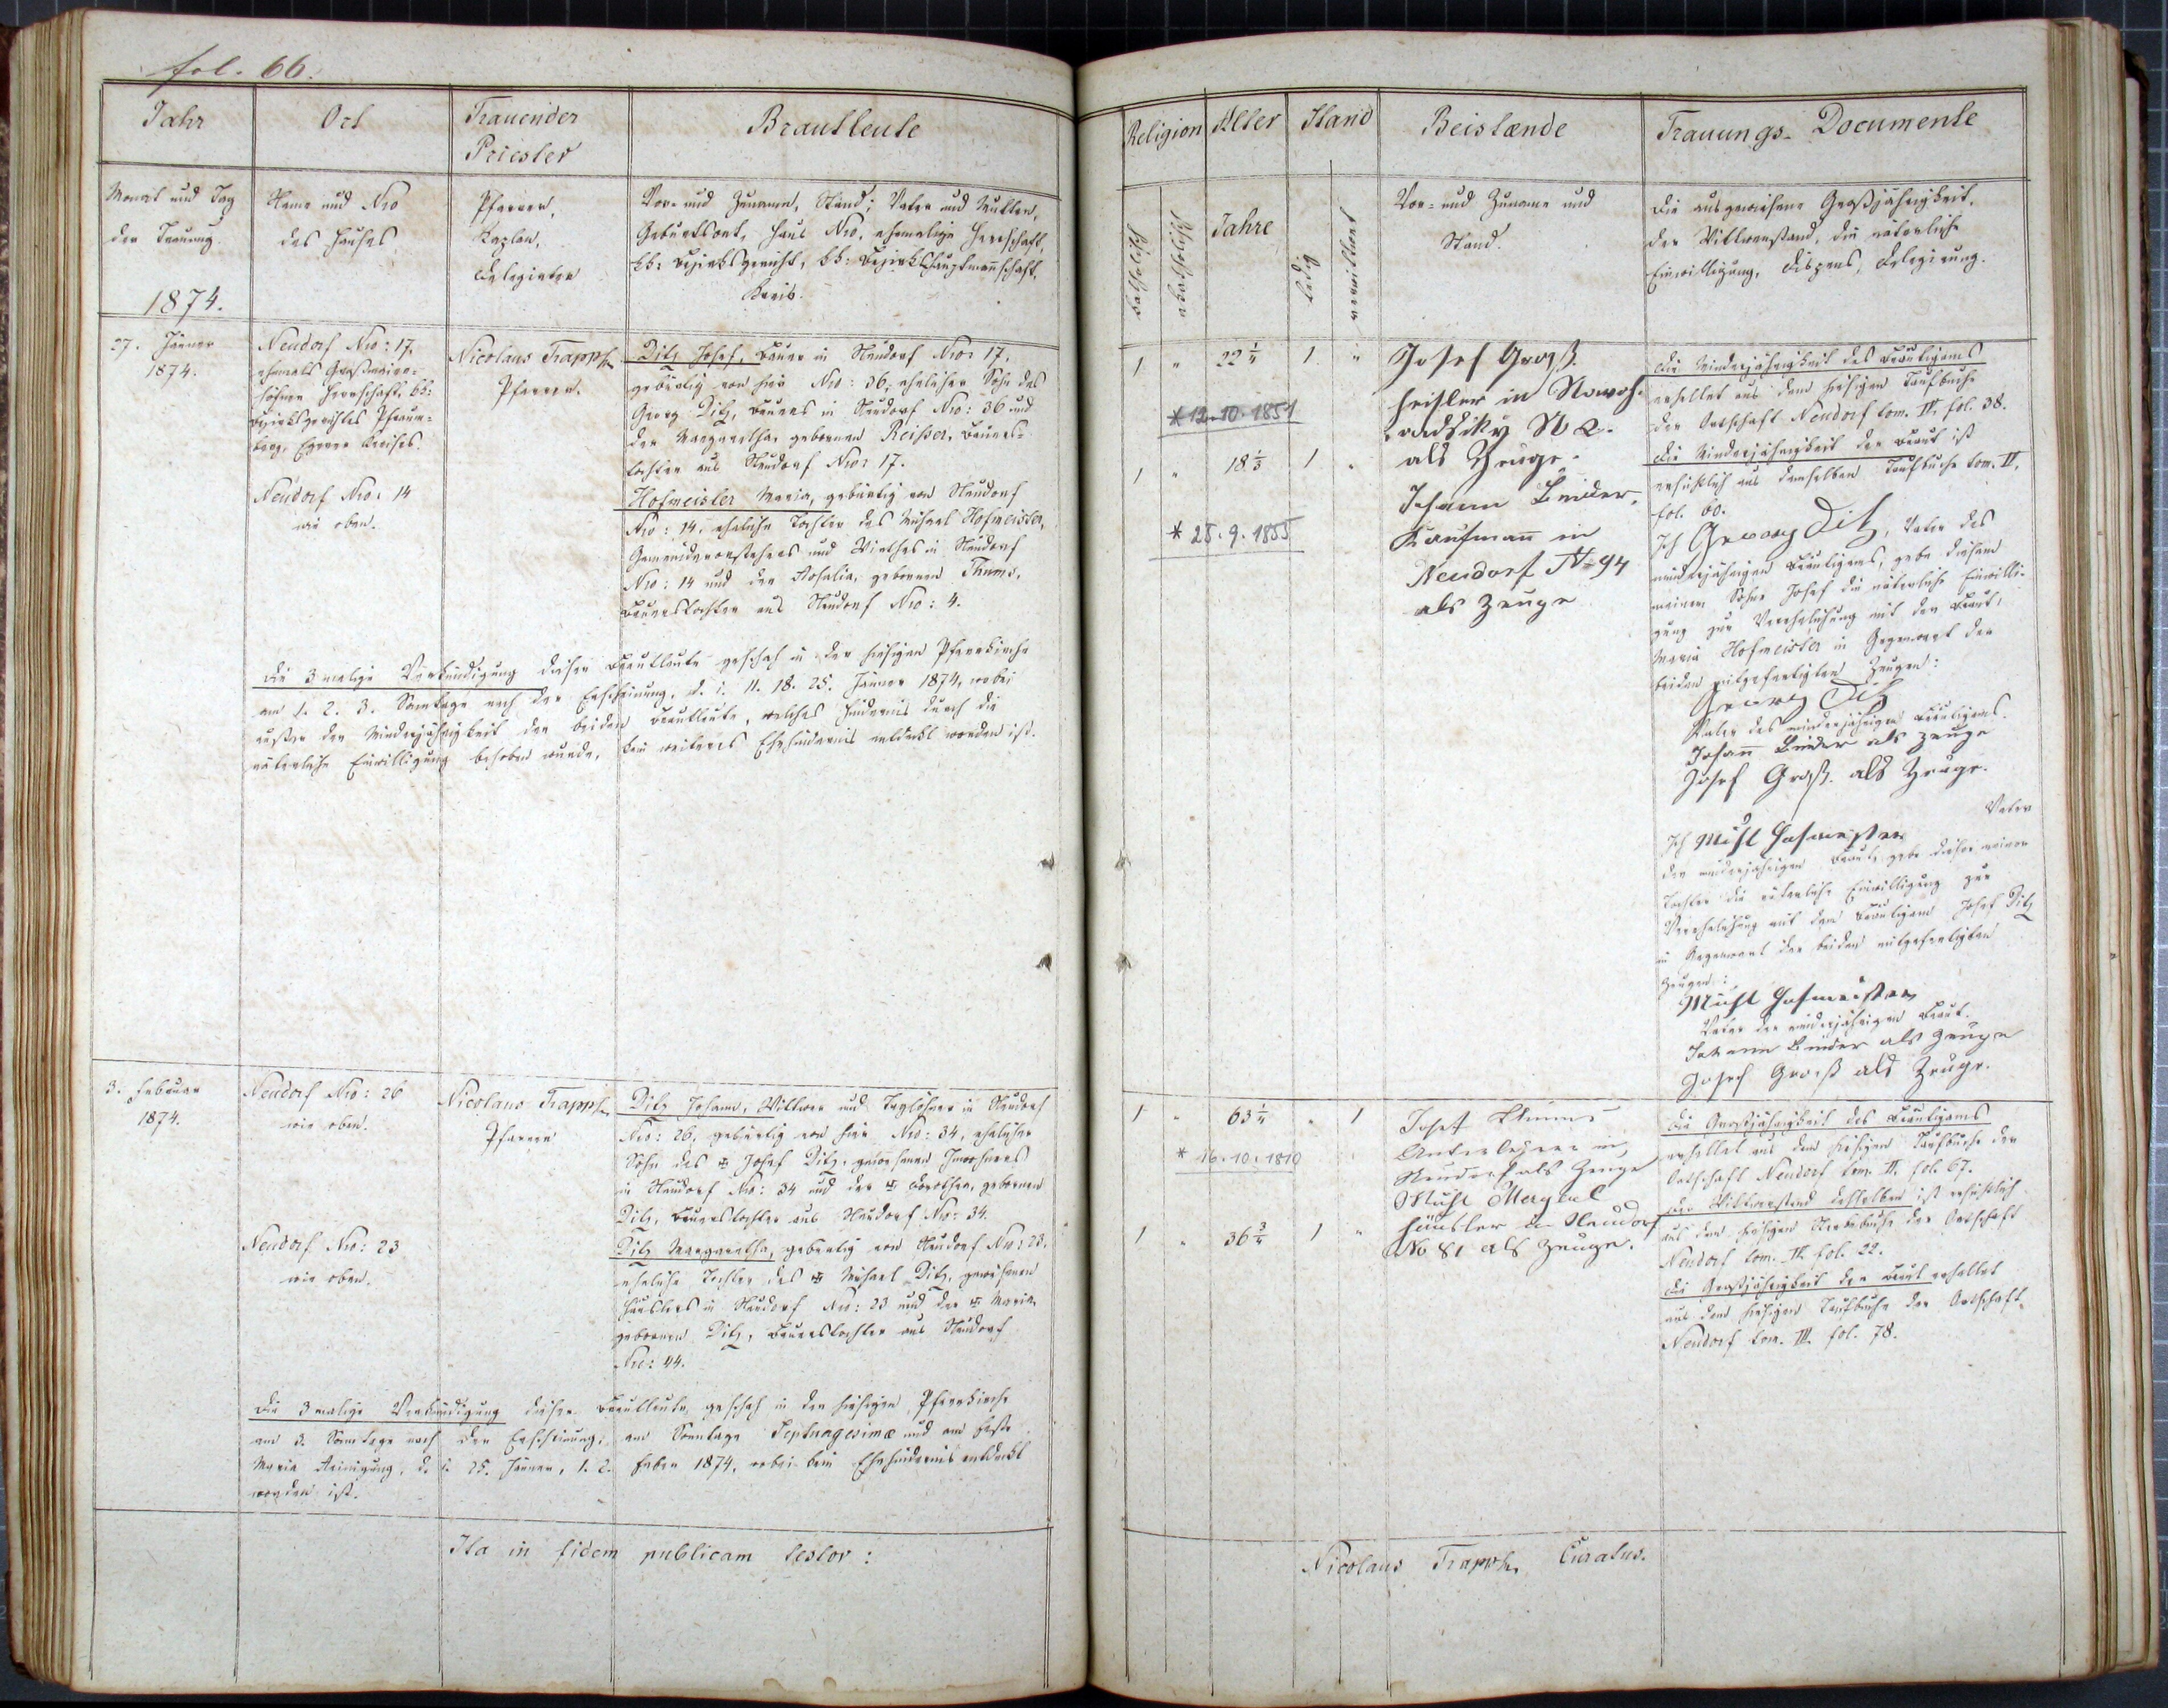 fol. 66.
Jahr
Ort
Trauender
Priester
Brautleute
Monat und Tag
der Trauung
1874.
Name und Nro
des Hauses
Pfarrer,
Kaplan,
Delegirter
Vor- und Zuname, Stand; Vater und Mutter,
Geburtsort, Haus Nro, ehemalige Herrschaft,
kk: Bezirksgericht, kk: Bezirkshauptmannschaft,
Kreis.
27. Jänner
1874.
Neudorf Nro: 17,
ehemals Großmeier-
höfner Herrschaft, kk:
Bezirksgerichtes Pfraum-
berg, Egerer Kreises.
Neudorf Nro: 14
wie oben.
Nicolaus Trapp
Pfarrer.
Ditz Josef, Bauer in Neudorf Nro: 17,
gebürtig von hier Nro: 36, ehelicher Sohn des
Georg Ditz, Bauers in Neudorf Nro: 36 und
der Margaretha, gebornen Reißer, Bauers-
tochter aus Neudorf Nro: 17.
Hofmeister Maria, gebürtig von Neudorf
Nro: 14, eheliche Tochter des Michael Hofmeister,
Gemeindevorstehers und Wirthes in Neudorf
Nro: 14 und der Rosalia, gebornen Thums,
Bauerstochter aus Neudorf Nro: 4.
Die 3malige Verkündigung dieser Brautleute geschah in der hiesigen Pfarrkirche
am 1. 2. 3. Sonntage nach der Erscheinung, d. i. 11. 18. 25. Jänner 1874, wobei
außer der Minderjährigkeit der beiden Brautleute, welches Hindernis durch die
väterliche Einwilligung behoben wurde, kein weiteres Ehehindernis entdeckt worden ist.
3. Februar
1874.
Neudorf Nro: 26
wie oben.
Neudorf Nro: 23
wie oben.
Nicolaus Trapp
Pfarrer
Ditz Johann, Wittwer und Taglöhner in Neudorf
Nro: 26, gebürtig von hier Nro: 34, ehelicher
Sohn des Josef Ditz, gewesenen Inwohners
in Neudorf Nro: 34 und der Dorothea, gebornen
Ditz, Bauerstochter aus Neudorf Nro: 34.
Ditz Margaretha, gebürtig von Neudorf Nro: 23,
eheliche Tochter des Michael Ditz, gewesenen
Häuslers in Neudorf Nro: 23 und der Maria,
gebornen Ditz, Bauerstochter aus Neudorf
Nro: 44.
Die 3malige Verkündigung dieser Brautleute geschah in der hiesigen Pfarrkirche
am 3. Sonntage nach der Erscheinung, am Sonntage Septuagesimæ und am Feste
Maria Reinigung, d. i. 25. Jänner, 1. 2. Feber 1874, wobei kein Ehehindernis entdeckt
worden ist.
Ita in fidem publicam testor:
Religion
Alter
Stand
Beistænde
Trauungs-Documente
katholisch
akatholisch
Jahre
ledig
verwittwet
Vor- und Zuname und
Stand.
Die ausgewiesene Großjährigkeit,
der Wittwenstand, die väterliche
Einwilligung, Dispens, Delegirung.
1 " 22 1/4 1 "
* 12.10.1851
1 " 18 1/3 1 "
* 25.9.1855
Josef Groß.
Heisler in
N 2.
als Zeuge.
Johann Binder,
Kaufmann in
Neudorf N 94
als Zeuge
Die Minderjährigkeit des Bräutigams
erhellet aus dem hiesigen Taufbuche
der Ortschaft Neudorf tom. IV. fol. 38.
Die Minderjährigkeit der Braut ist
ersichtlich aus demselben Taufbuche tom. IV.
fol. 60.
Ich Georg Ditz, Vater des
minderjährigen Bräutigams, gebe diesem
meinem Sohne Josef die väterliche Einwilli-
gung zur Verehelichung mit der Braut,
Maria Hofmeister in Gegenwart der
beiden mitgefertigten Zeugen:
Georg Ditz
Vater des minderjährigen Bräutigams.
Johann Binder als Zeuge
Josef Groß. als Zeuge.
Ich Michl Hofmeister Vater
der minderjährigen Braut, gebe dieser meiner
Tochter die väterliche Einwilligung zur
Verehelichung mit dem Bräutigam Josef Ditz
in Gegenwart der beiden mitgefertigten
Zeugen:
Michl Hofmeister
Vater der minderjährigen Braut.
Johann Binder als Zeuge
Josef Groß als Zeuge.
1 " 63 1/4 " 1
* 16.10.1810
1 " 36 3/4 1 "
Josef Thums
in
Neudorf als Zeuge
Michl
Häusler in Neudorf
No 81 als Zeuge.
Die Großjährigkeit des Bräutigams
erhellet aus dem hiesigen Taufbuche der
Ortschaft Neudorf tom. II. fol. 67.
Der Wittwerstand desselben ist ersichtlich
aus dem hiesigen Sterbbuche der Ortschaft
Neudorf tom. IV. fol. 22.
Die Großjährigkeit der Braut erhellet
aus dem hiesigen Taufbuche der Ortschaft
Neudorf tom. III. fol. 78.
Nicolaus Trapp Curatus.